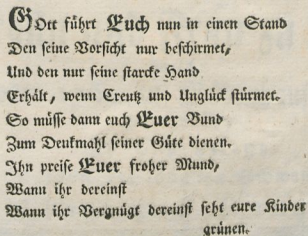 GOtt führt Euch nun in einen Stand
Den seine Vorsicht nur beschirmet,
Und den nur seine starcke Hand
Erhält, wenn Creutz und Unglück stürmet.
So müsse dann euch Euer Bund
Zum Denkmahl seiner Güte dienen.
Ihn preise Euer froher Mund,
Wann ihr dereinst
Wann ihr Vergnügt dereinst seht eure Kinder
grünen.